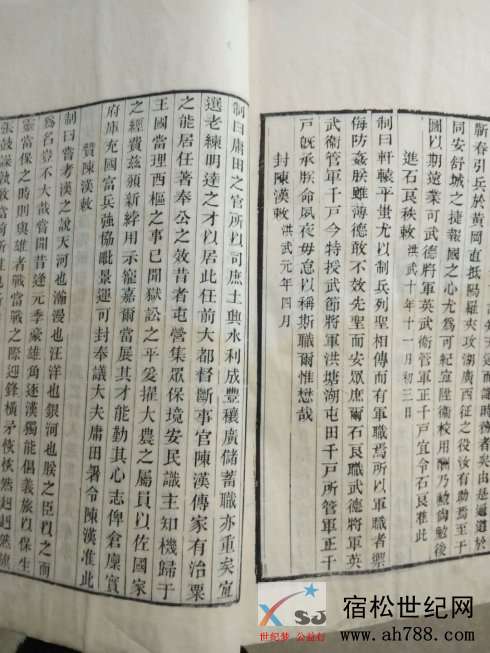 蘄春引兵於黄岡直抵陽羅夾攻湖廣西征之役汝有勩焉至于
同安舒城之捷報國之心尤爲可紀宣陞衛校用酬乃勳尚勉後
圖以期遠業可武德將軍英武衛管軍正千戸宜令石良准此
進石良秩敕 洪武十年十一月初三日
制曰軒轅平蚩尤以制兵列聖相傳而有軍職焉所以軍職者禦
侮防姦朕雖薄德敢不先聖而安衆庶爾石良職武德將軍英
武衛管軍千戸今特授武節將軍洪塘湖屯田千戸所管軍正千
戸旣承朕命夙夜毋怠以稱斯職爾惟懋哉
封陳漢敕 洪武元年四月
制曰庸田之官所以司庶土興水利成豐穰廣儲蓄職亦重矣宜
選老練明達之才以居此任前大都督斷事官陳漢傳家有治粟
之能居任著奉公之效昔者屯營集眾保境安民識主知機歸于
王國當理西樞之事已聞獄訟之平爰擢大農之屬員以佐國家
之經費茲頒新綍用示寵嘉爾當展其才能勤其心志俾倉廩實
府庫充國富兵強協毗景運可封奉議大夫庸田署令陳漢准此
贊陳漢敕
制曰嘗考漢之說天河也瀚漫也汪洋也銀河也朕之臣以之而
爲名豈不大哉嘗聞昔逢元季豪雄角逐漢獨能倡義旅以保生
靈當保之時則與雄者戰當戰之際迎鋒橫矛
宿松世纪网
www.ah788.com
XSJ
世纪梦 公益行